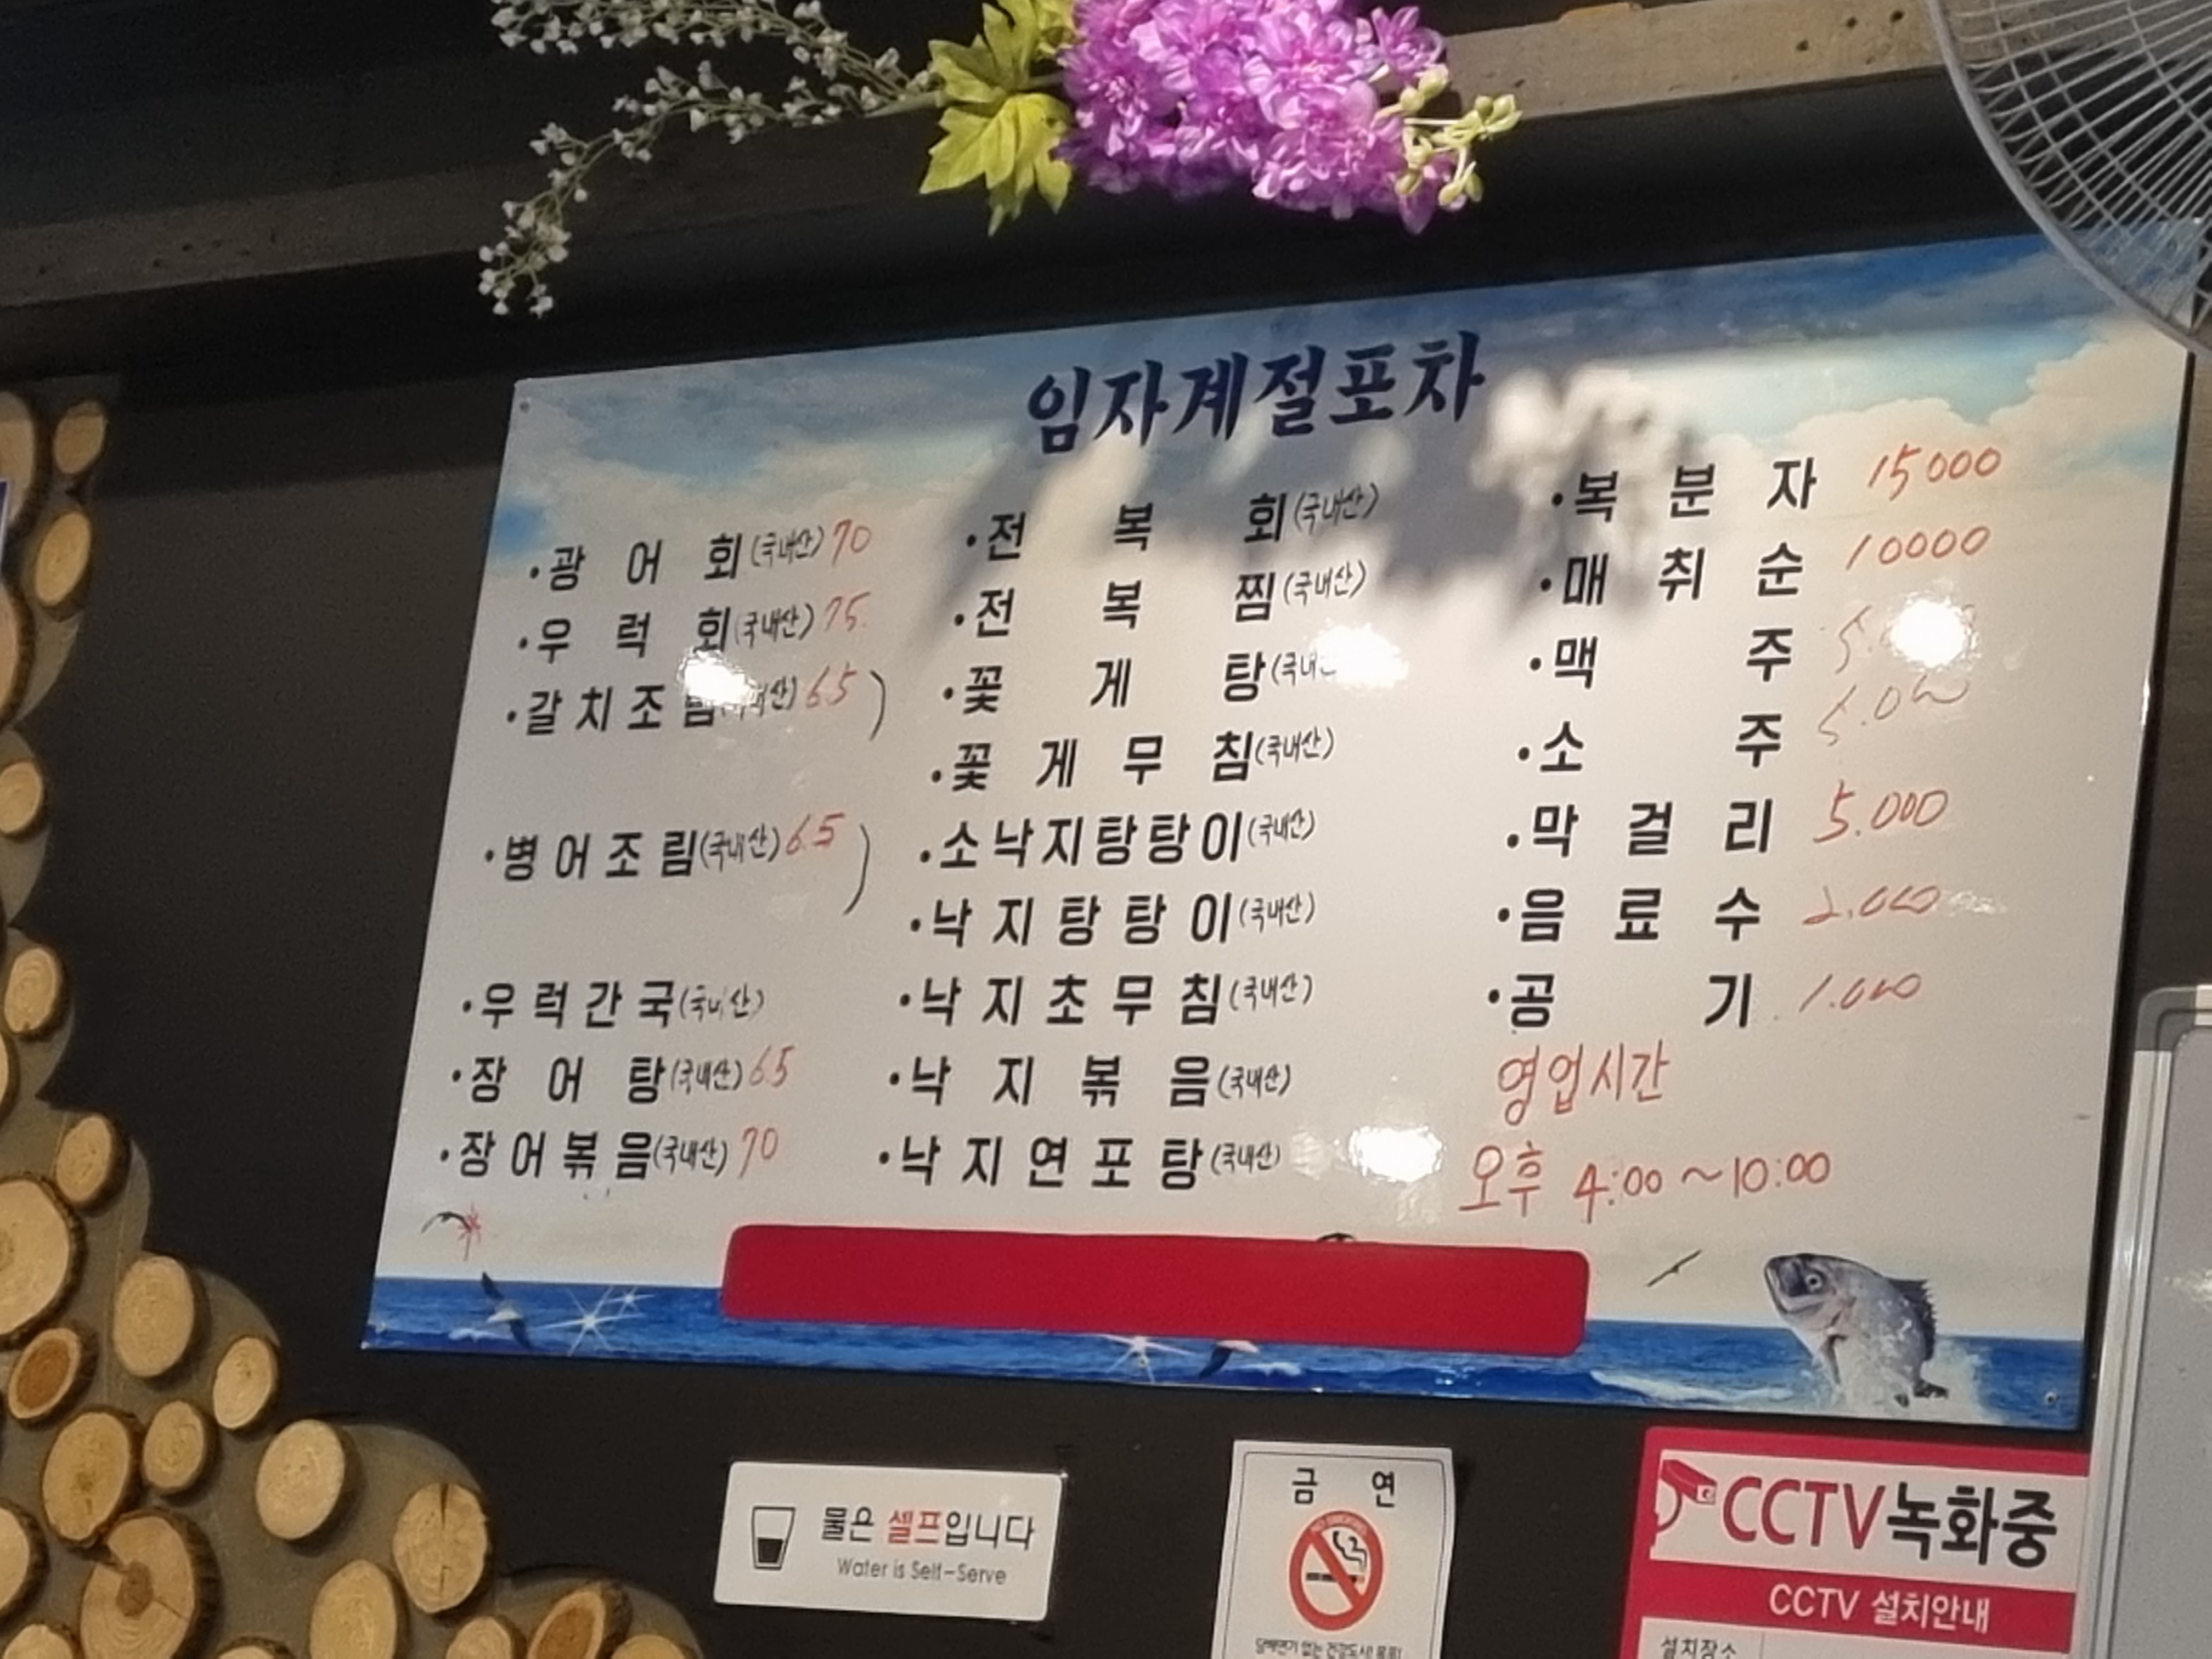 임자계절포차
·광 어 회(국내산) 70
·우 럭 회(국내산) 75.
·갈 치 조 림 65)
·병 어 조 림(국내산) 65)
·우 럭 간 국(국내산)
·장 어 탕(국내산) 65
·장 어 볶 음(국내산) 70
·전 복 회(국내산)
·전 복 찜(국내산)
·꽃 게 탕
·꽃 게 무 침(국내산)
·소낙지탕탕이(국내산)
·낙 지 탕 탕 이(국내산)
·낙 지 초 무 침(국내산)
·낙 지 볶 음(국내산)
·낙 지 연 포 탕(국내산)
·복 분 자 15000
·매 취 순 10000
·맥 주
·소 주 5.000
·막 걸 리 5.000
·음 료 수 2.000
·공 기 1.000
영업시간
오후 4:00~10:00
물은 셀프입니다
Water is Self-Serve
금 연
CCTV녹화중
CCTV 설치안내
설치장소